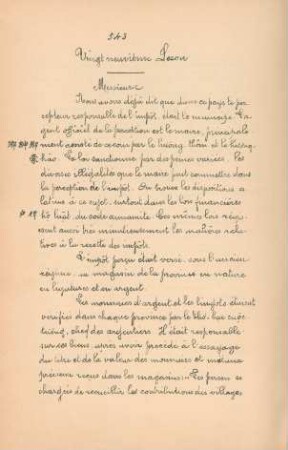 543
Vingt neuvième Leçon
Messieurs
Nous avons déjà dit que dans ce pays le per-
cepteur responsable de l'impôt, était la commune. L'a-
gent officiel de la perception est le maire, principale-
ment assisté de ce soin par le hương thôn et le hương
hào. La loi sanctionne par des peines variées, les
diverses illégalités que le maire peut commettre dans
la perception de l'impôt. On trouve les dispositions re-
latives à ce sujet, surtout dans les lois financières
hộ luật du code annamite. Ces mêmes lois régis-
sent aussi très minutieusement les matières rela-
tives à la recette des impôts.
L'impôt perçu était versé, sous l'ancien
régime, au magasin de la province en nature
en ligatures ou en argent.
Les monnaies d'argent et les lingots étaient
vérifiés dans chaque province par le
tượng, chef des argentiers. Il était responsable
sur ses biens, après avoir procédé à l'essayage
du titre et de la valeur des monnaies et matières
précieuses reçues dans les magasins. Les personnes
chargées de recueillir les contributions des villages